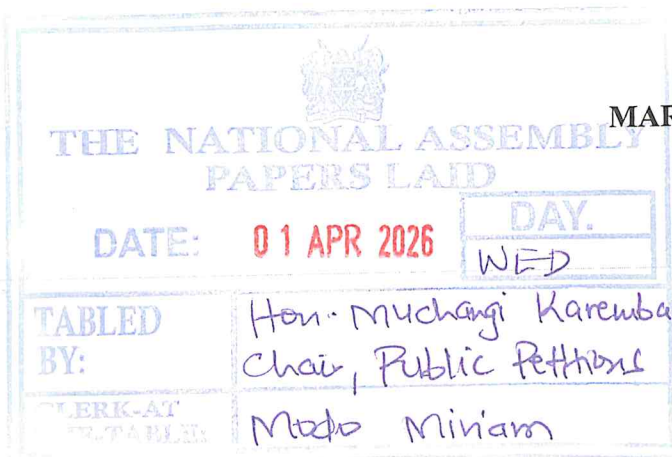 MAR
THE NATIONAL ASSEMBLY
PAPERS LAID
DATE: 01 APR 2026
DAY.
WED
TABLED BY: Hon. Muchangi Karemba
Chair, Public Petitions
CLERK-AT
THE-TABLE: Miriam